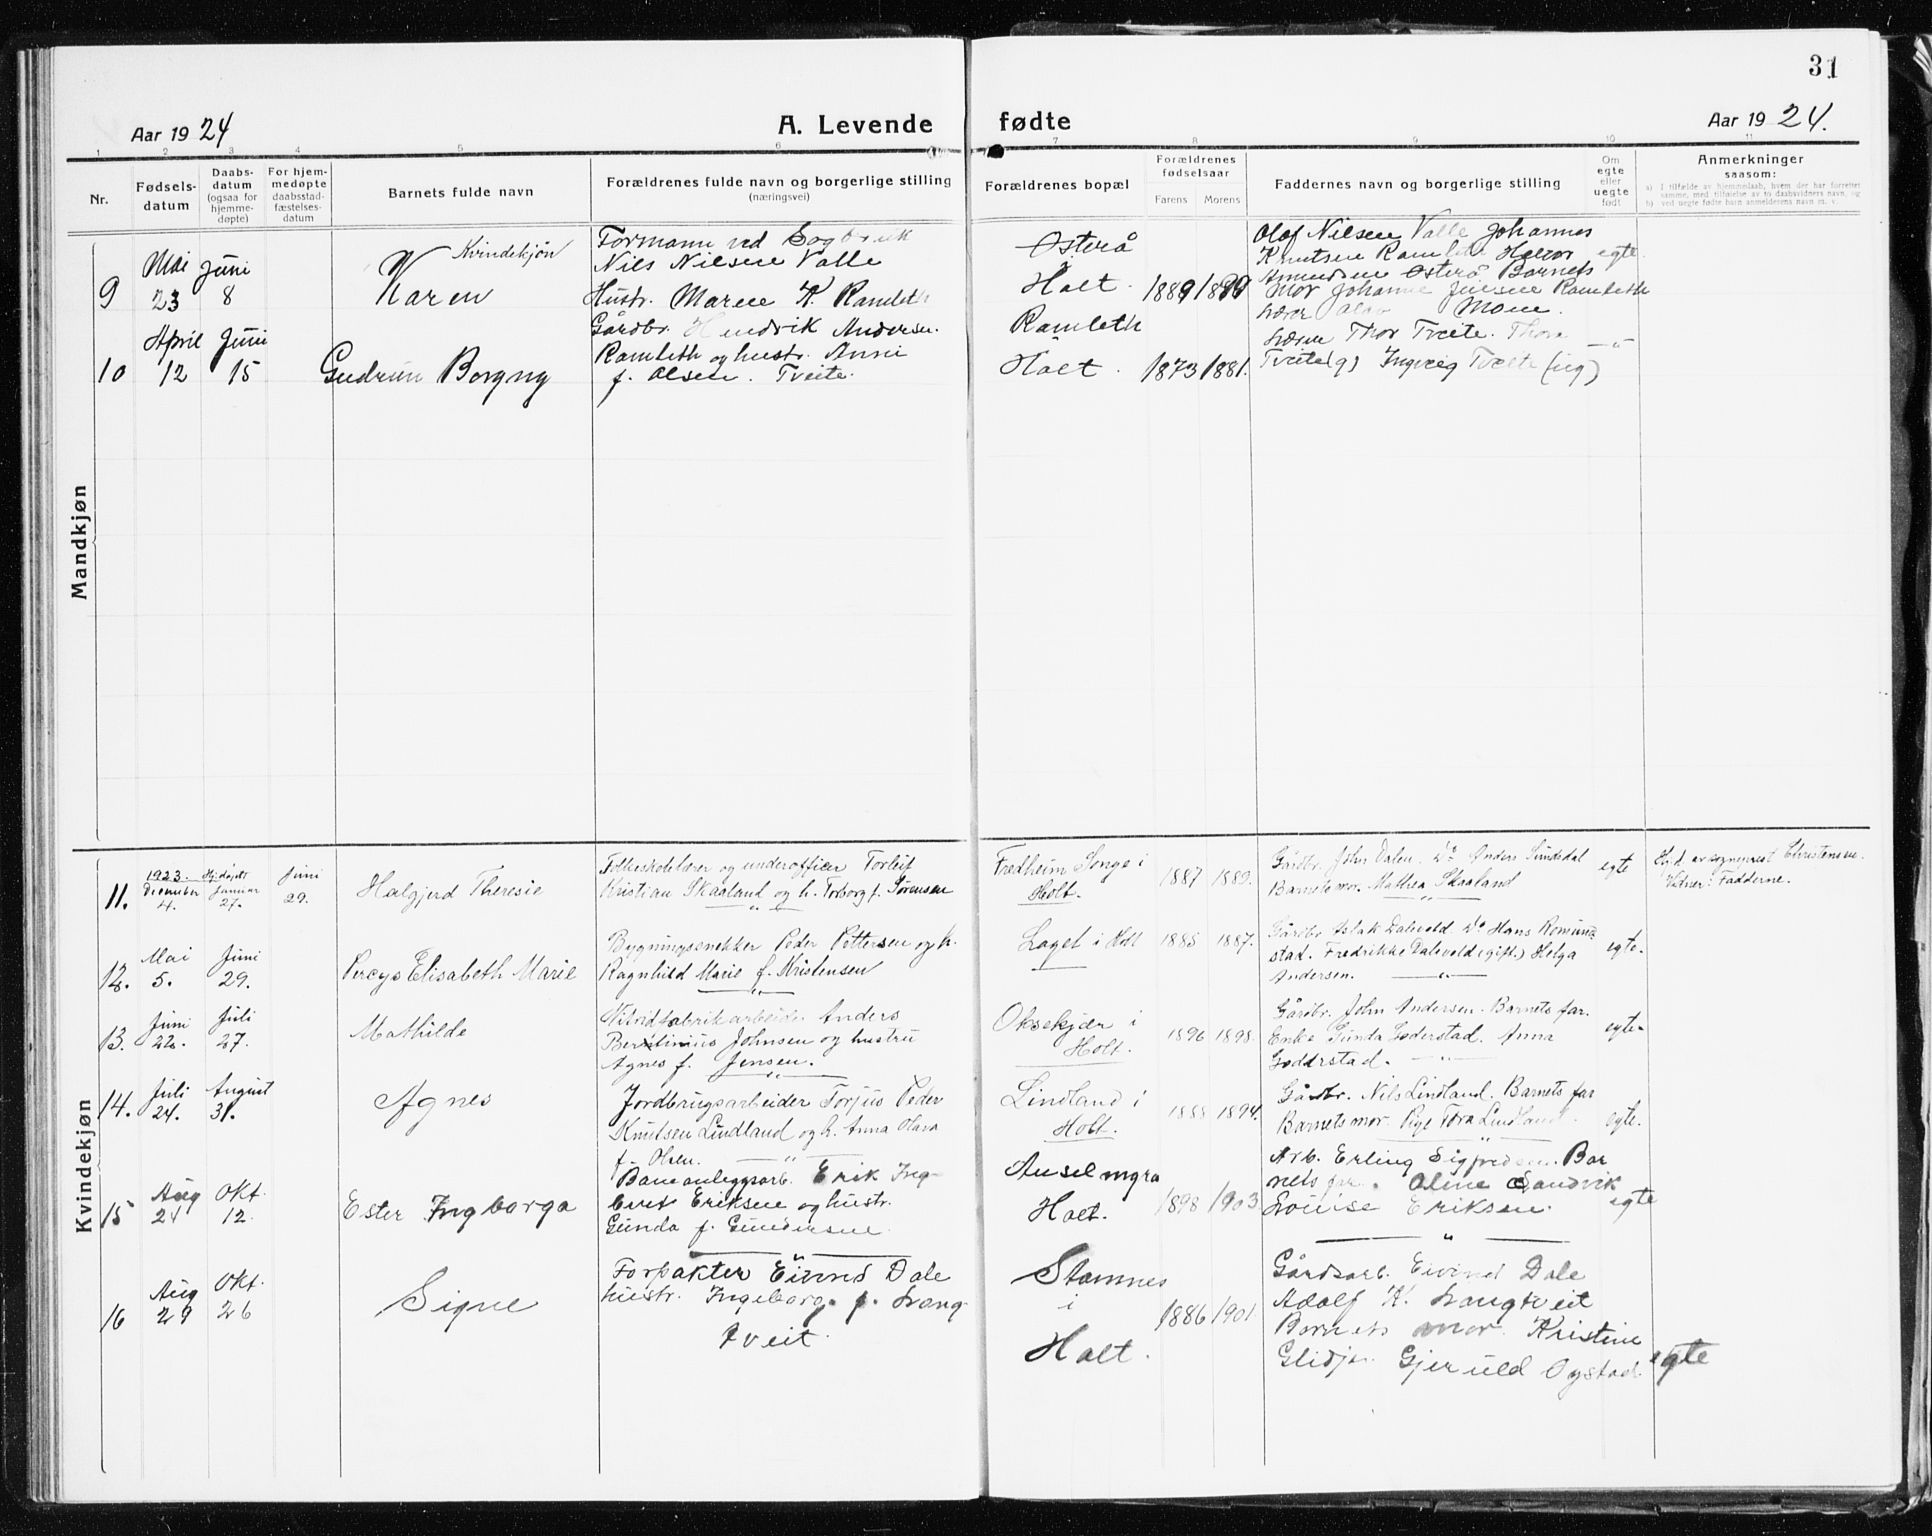 31
Aar 1924
A. Levende fødte
Aar 1924.
1 2 3 4 5 6 7 8 9 10 11
Nr.
Fødsels-
datum
Daabs-
datum
(ogsaa for
hjemme-
døpte)
For hjem-
medøpte
daabsstad-
fæstelses-
datum
Barnets fulde navn
Forældrenes fulde navn og borgerlige stilling
(næringsvei)
Forældrenes bopæl
Forældrenes
fødselsaar
Farens Morens
Faddernes navn og borgerlige stilling
Om
egte
eller
uegte
født
Anmerkninger
saasom:
a) I tilfælde av hjemmedaab, hvem der har forrettet
samme, med tilføielse av to daabsvidners navn, og
b) ved uegte fødte barn anmelderens navn m. v.
Mandkjøn
9
Mai
23
Juni
8
Kvindekjøn
Karen
Formann ved
Nils Nilsen Valle
Hustr. Maren K. Ramleth
Østerå
Holt.
1889
Olaf Nilsen Valle Johannes
Knutsen Ramleth Halvor
Amundsen Østerå Barnets
Mor Johanne Jensen Ramleth
egte
10
April
12
Juni
15
Gudrun Borgny
Gårdbr. Hendrik Andersen
Ramleth og hustr. Anni
f. Olsen. Tveite.
Ramleth
Holt.
1873 1881.
Lærer Olav Moen.
Thor Tveite. Thora
Tveite (g) Ingveig Tveite (ug)
— „ —
Kvindekjøn
11.
1923.
December
4.
Hj.døpt
Januar
27.
Juni
29.
Halgjerd Theresie
Folkeskolelærer og underofficer Torleif
Kristian Skaaland og h. Torborg f. Sørensen
Fredheim Songe i
Holt.
1887 1889.
Gårdbr. John Dalen. Do Anders Sundsdal
Barnets mor. Mathea Skaaland
egte
Hjd. av sogneprest Christensen.
Vidner: Fadderne.
12.
Mai
5.
Juni
29.
Percys Elisabeth Marie
Bygningssnekker Peder Pettersen og h.
Ragnhild Marie f. Kristensen
Laget i Holt
1885 1887.
Gårdbr. Aslak Dalevold Do Hans Romund-
stad. Fredrikke Dalevold (gift.) Helga
Andersen.
egte.
13.
Juni
22.
Juli
27.
Mathilde
Nitridfabrikarbeider Anders
Johnsen og hustru
Agnes f. Jensen.
Oksekjær i
Holt.
1896 1898.
Gårdbr. John Andersen. Barnets far.
Enke Gunda Goderstad. Anna
Godderstad.
egte
14.
Juli
24.
August
31.
Agnes
Jordbrugsarbeider Torjus Peder
Knutsen Lindland og h. Anna Olava
f. Olsen.
Lindland i
Holt.
1888 1894.
Gårdbr. Nils Lindland. Barnets far
Barnets mor. Pige Tora Lindland.
egte.
15
Aug
24
Okt.
12.
Ester Ingborga
Baneanleggsarb. Erik Ing-
bret Eriksen og hustr.
Gunda f. Gundersen
Anselmyra
Holt.
1898 1903
Arb. Erling Sigfredsen. Bar
nets far. Oline Sandvik
Louise Eriksen.
egte
16
Aug
29
Okt.
26
Signe
Forpakter Eivind Dale
hustr. Ingeborg f. Lang-
tveit.
Stamnes
i
Holt.
1886 1901
Gårdsarb. Eivind Dale
Adolf K. Langtveit
Barnets mor. Kristine
Glidje. Gjeruld Oystad
egte